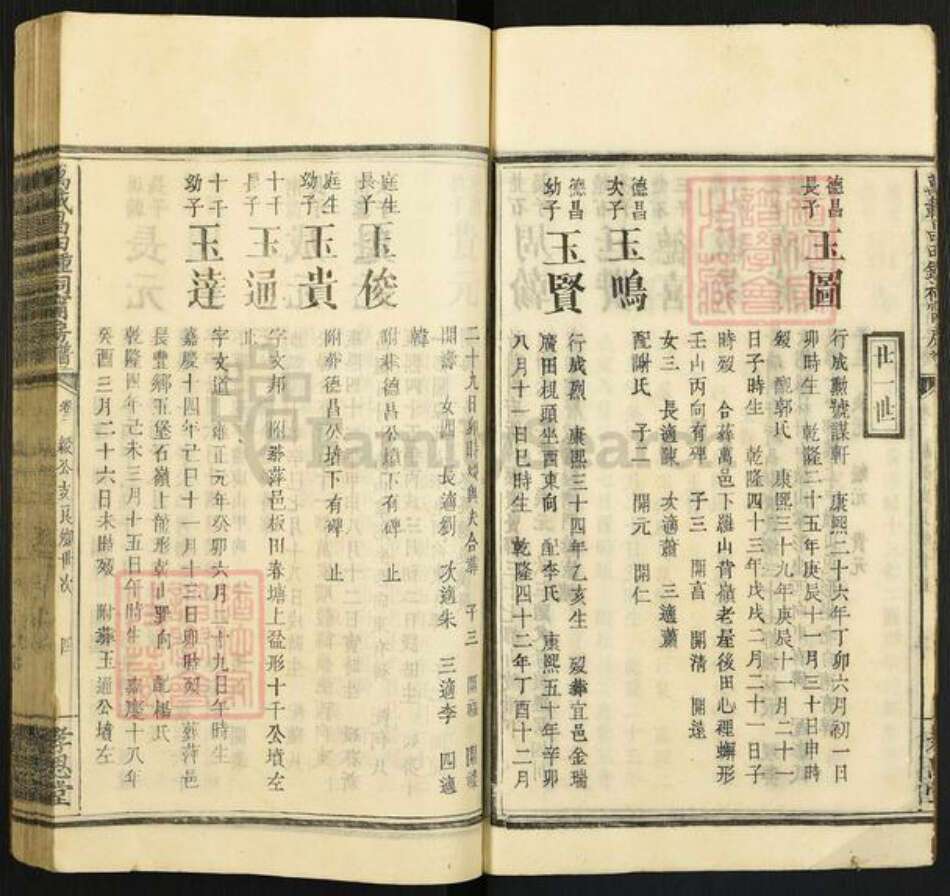 廿一世
德昌長子 玉圖
行成勲號謀軒 康熙二十六年丁卯六月初一日
卯時生 乾隆二十五年庚辰十一月三十日申時
歿 配郭氏 康熙三十九年庚辰十一月二十一
日子時生 乾隆四十三年戊戌二月二十一日子
時歿 合葬萬邑下羅山背嶺老屋後田心裡蠏形
壬山丙向有碑 子三 開富 開清 開逵
女三 長適陳 次適蕭 三適蕭
德昌次子 玉鳴
配謝氏 子二 開元 開仁
德昌幼子 玉賢
行成烈 康熙三十四年乙亥生 歿葬宜邑金瑞
廣田梘頭坐西東向 配李氏 康熙五十年辛卯
八月十一日巳時生 乾隆四十二年丁酉十二月
二十九日 時歿與夫合葬 子三 開 開
開壽 女四 長適劉 次適朱 三適李 四適
韓
庭生長子 玉俊
附葬德昌公墳下有碑 止
庭生幼子 玉貴
附葬德昌公墳下有碑 止
十千長子 玉通
字文邦 附葬萍邑板田春塘上盆形十千公墳左
止
十千幼子 玉達
字文道 雍正元年癸卯六月二十九日午時生
嘉慶十四年己巳十一月十三日卯時歿 葬萍邑
長豐鄉五堡石嶺上 形乾山巽向 配楊氏
乾隆四年己未三月十五日午時生 嘉慶十八年
癸酉三月二十六日未時歿 附葬玉通公墳左
卷 派世次 四
孝思堂